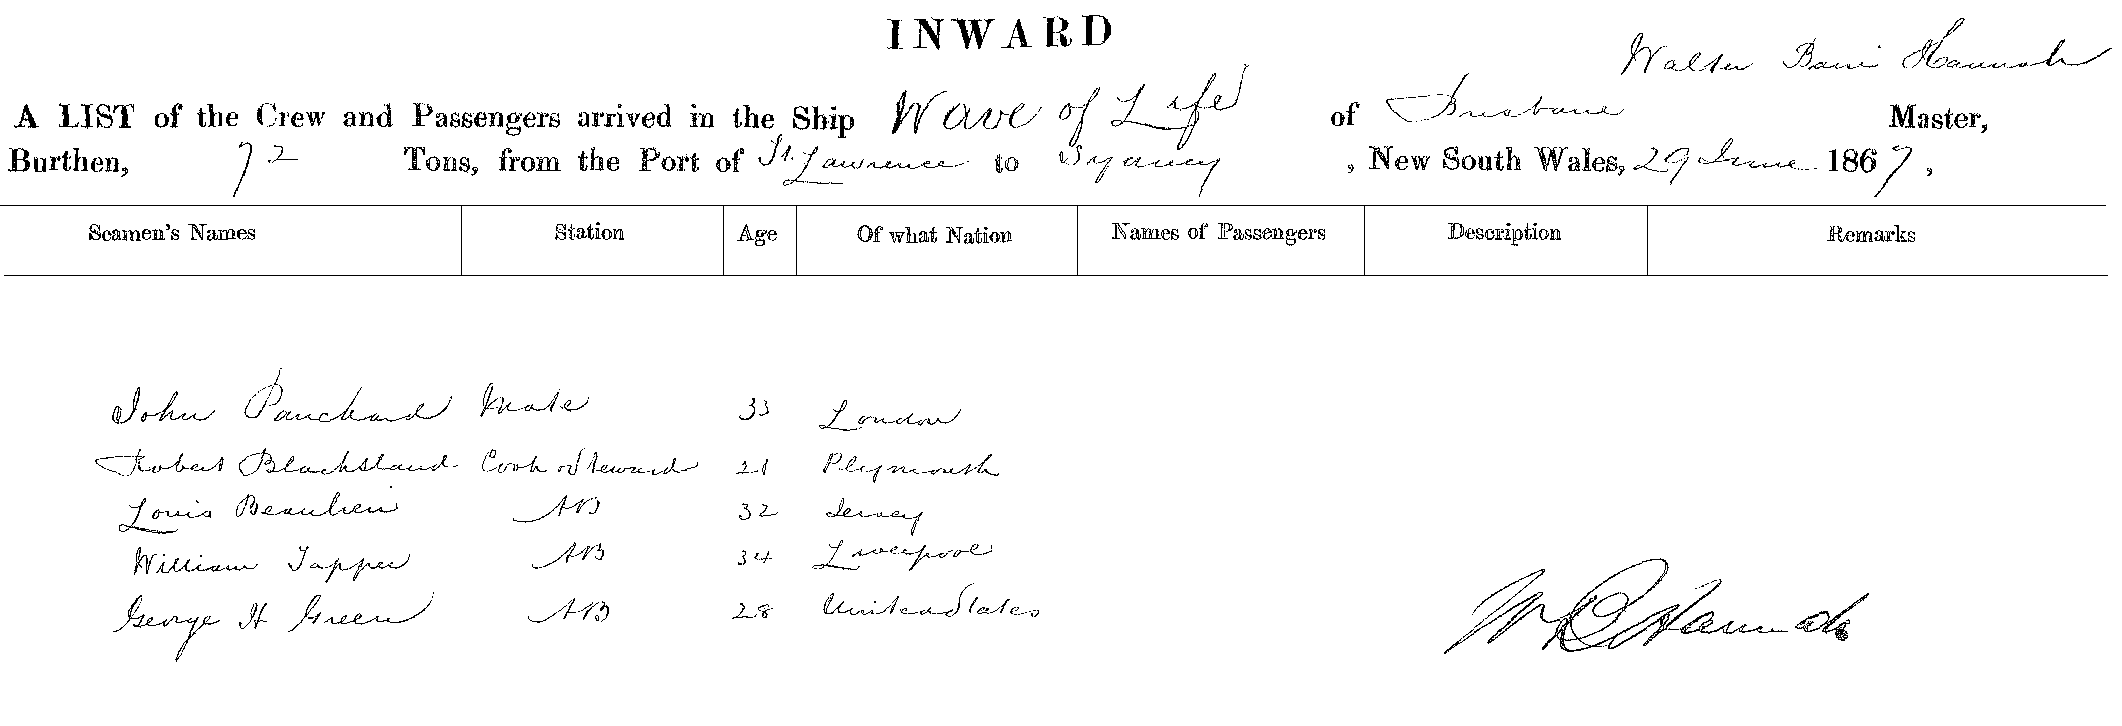 INWARD
Walter Hannah
A LIST of the Crew and Passengers arrived in the Ship Wave of Life of Brisbane Master,
Burthen, 72 Tons, from the Port of St. Lawrence to Sydney, New South Wales, 29 June 1867,
Seamen's Names Station Age Of what Nation Names of Passengers Description Remarks
John Panchard Mate 33 London
Robert Blacksland Cook & Steward 21 Plymouth
Louis Beaulieu AB 32 Jersey
William Tapper AB 34 Liverpool
George H Green AB 28 United States
W B Hannah